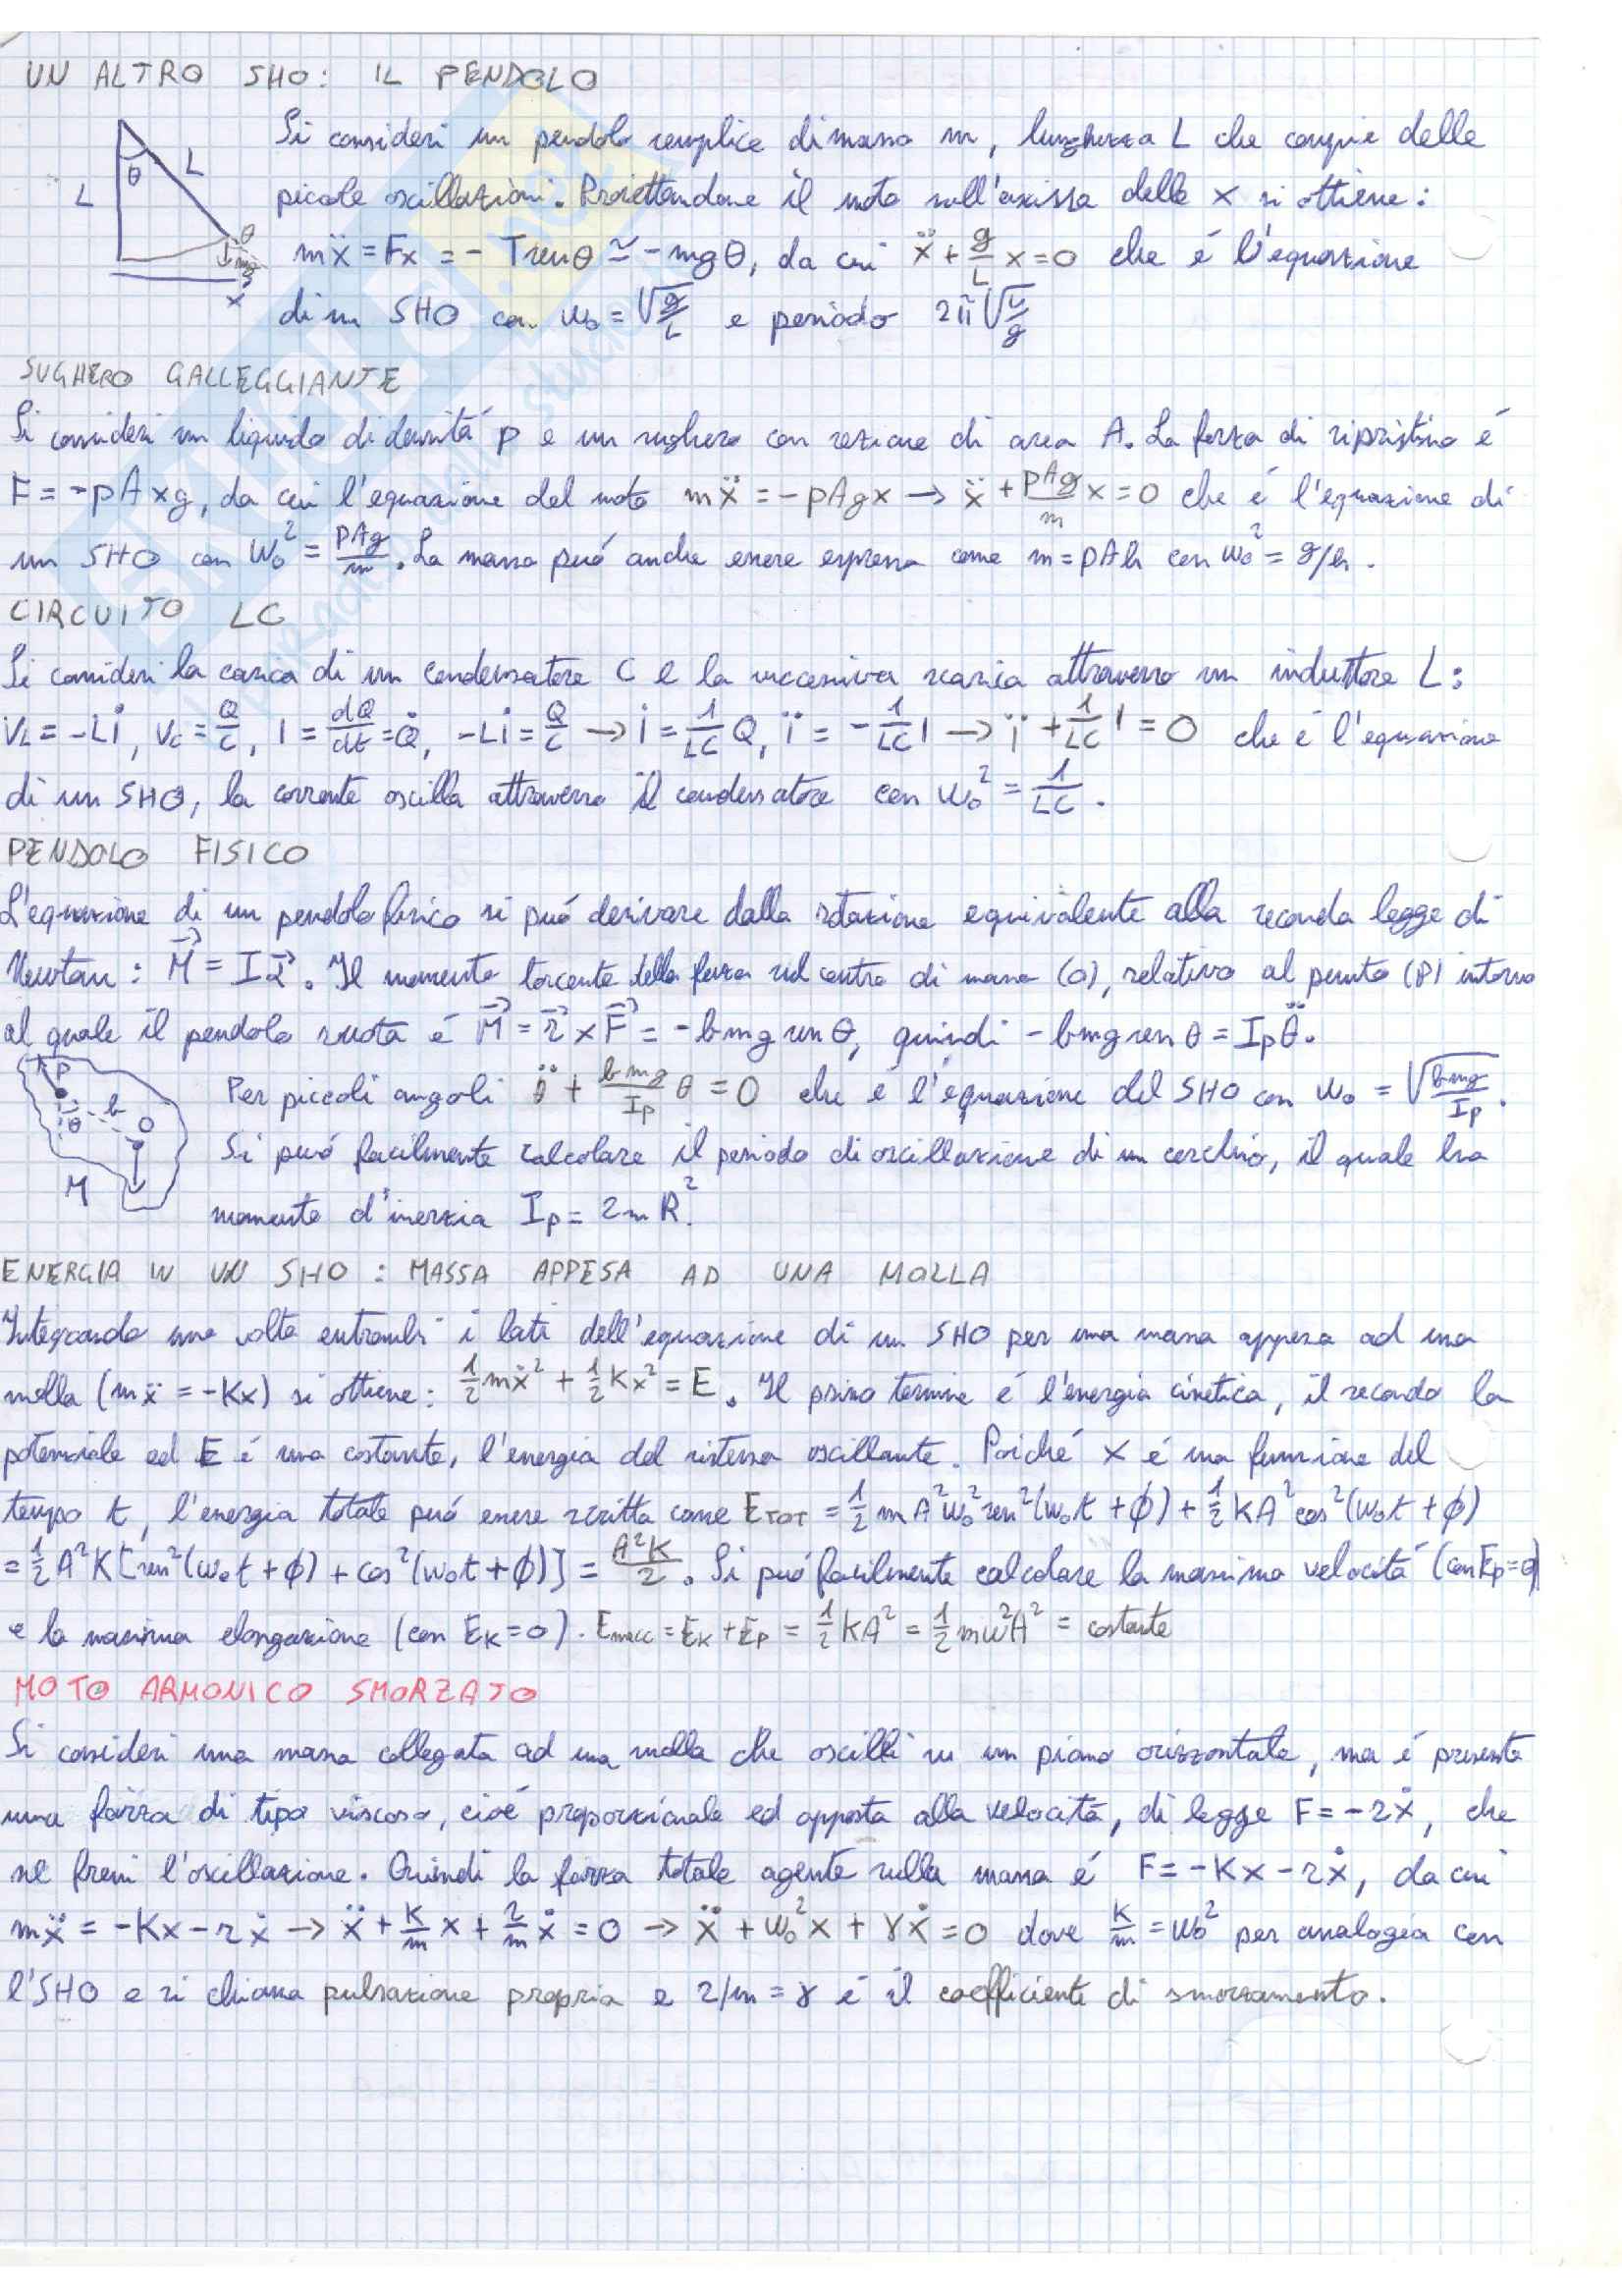 UN ALTRO SHO: IL PENDOLO
Si consideri un pendolo semplice di massa m, lunghezza L che compie delle
piccole oscillazioni. Proiettandone il moto sull'ascissa delle x si ottiene:
mẍ = Fx = - T sen θ ≃ - mgθ, da cui ẍ + g/L x = 0 che é l'equazione
di un SHO con ω₀ = √(g/L) e periodo 2π√(L/g)
L
θ
L
θ
mg
x
SUGHERO GALLEGGIANTE
Si consideri un liquido di densitá ρ e un sughero con sezione di area A. La forza di ripristino é
F = -ρAxg, da cui l'equazione del moto mẍ = -ρAgx → ẍ + ρAg/m x = 0 che é l'equazione di
un SHO con ω₀² = ρAg/m. La massa puó anche essere espressa come m = ρAh con ω₀² = g/h.
CIRCUITO LC
Si consideri la carica di un condensatore C e la successiva scarica attraverso un induttore L:
V_L = -Lİ, V_C = Q/C, I = dQ/dt = Q̇, -Lİ = Q/C → İ = 1/LC Q, Ï = - 1/LC I → Ï + 1/LC I = 0 che é l'equazione
di un SHO, la corrente oscilla attraverso il condensatore con ω₀² = 1/LC.
PENDOLO FISICO
L'equazione di un pendolo fisico si puó derivare dalla rotazione equivalente alla seconda legge di
Newton: M⃗ = Iα⃗. Il momento torcente della forza sul centro di massa (O), relativo al punto (P) intorno
al quale il pendolo ruota é M⃗ = r⃗ x F⃗ = -bmg sen θ, quindi -bmg sen θ = I_P θ̈.
Per piccoli angoli θ̈ + bmg/I_P θ = 0 che é l'equazione del SHO con ω₀ = √(bmg/I_P).
Si puó facilmente calcolare il periodo di oscillazione di un cerchio, il quale ha
momento d'inerzia I_P = 2mR².
P
b
θ
O
M
ENERGIA IN UN SHO: MASSA APPESA AD UNA MOLLA
Integrando una volta entrambi i lati dell'equazione di un SHO per una massa appesa ad una
molla (mẍ = -Kx) si ottiene: ½mẋ² + ½Kx² = E. Il primo termine é l'energia cinetica, il secondo la
potenziale ed E é una costante, l'energia del sistema oscillante. Poiché x é una funzione del
tempo t, l'energia totale puó essere scritta come E_TOT = ½ m A²ω₀² sen²(ω₀t + ϕ) + ½ KA² cos²(ω₀t + ϕ)
= ½ A²K [sen²(ω₀t + ϕ) + cos²(ω₀t + ϕ)] = A²K/2. Si puó facilmente calcolare la massima velocitá (con E_P = 0)
e la massima elongazione (con E_K = 0). E_mecc = E_K + E_P = ½ KA² = ½ mω²A² = costante
MOTO ARMONICO SMORZATO
Si consideri una massa collegata ad una molla che oscilli su un piano orizzontale, ma é presente
una forza di tipo viscoso, cioé proporzionale ed opposta alla velocitá, di legge F = -rẋ, che
ne freni l'oscillazione. Quindi la forza totale agente sulla massa é F = -Kx - rẋ, da cui
mẍ = -Kx - rẋ → ẍ + K/m x + r/m ẋ = 0 → ẍ + ω₀²x + γẋ = 0 dove K/m = ω₀² per analogia con
l'SHO e si chiama pulsazione propria e r/m = γ é il coefficiente di smorzamento.